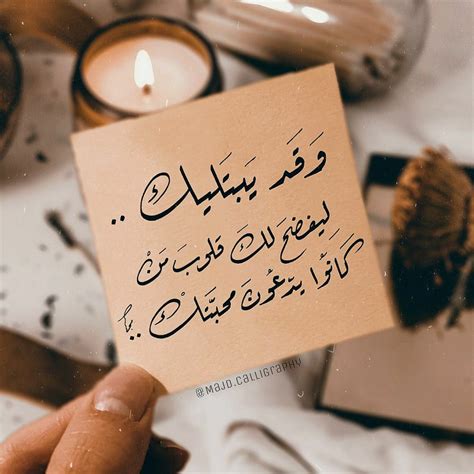 وَقَد يَبتَليك ..
ليفضحَ لكَ قلوبَ مَنْ
كَانُوا يدّعُونَ محبّتكْ ..!
@MAJD.CALLIGRAPHY